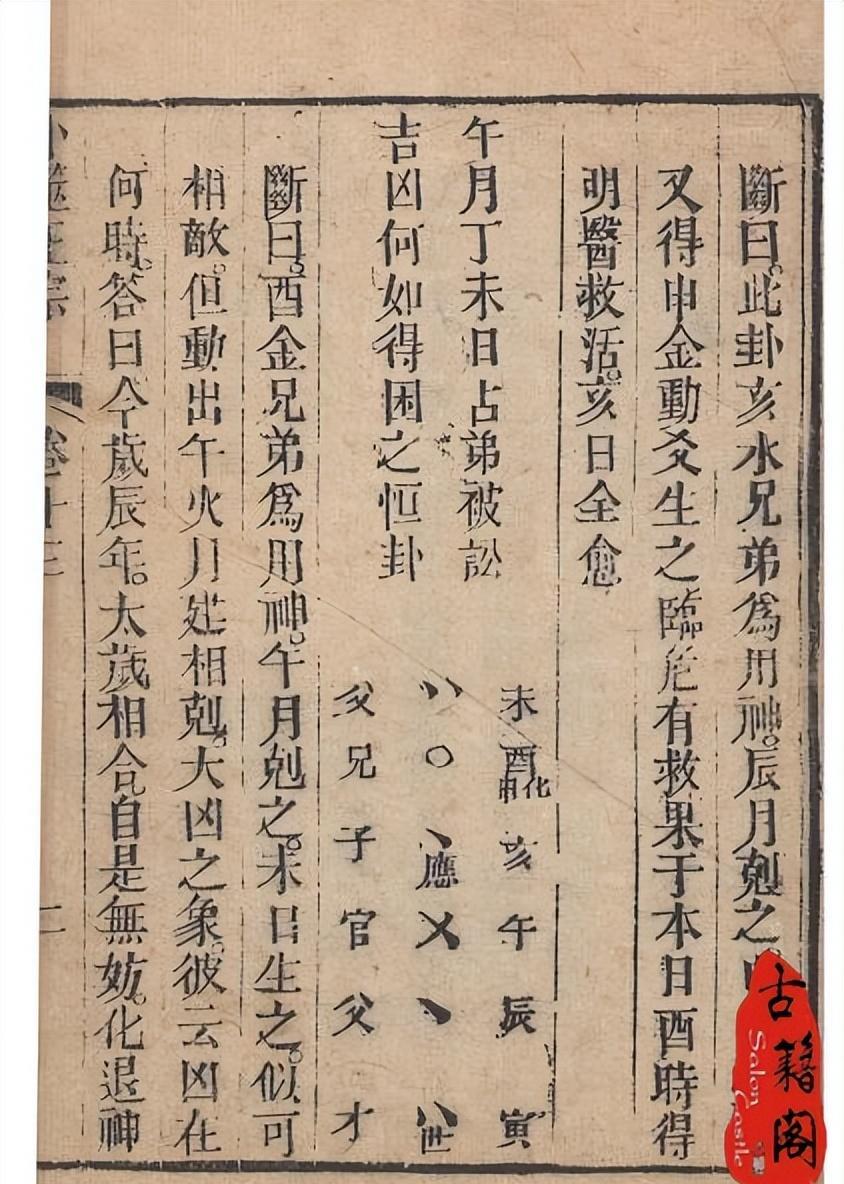 斷曰。此卦亥水兄弟爲用神。辰月尅之。
又得申金動爻生之臨危有救果于本日酉時得
明醫救活。亥日全愈
午月丁未日占弟被訟
吉凶何如得困之恒卦
未 酉化申 亥 午 辰 寅
〇 應 世
父 兄 子 官 父 才
斷曰。酉金兄弟爲用神。午月尅之。未日生之。似可
相敵。但動出午火月建相剋。大凶之象。彼云凶在
何時。答曰今歲辰年。太歲相合。自是無妨。化退神
卷十三
二
古籍阁
Salon Castle